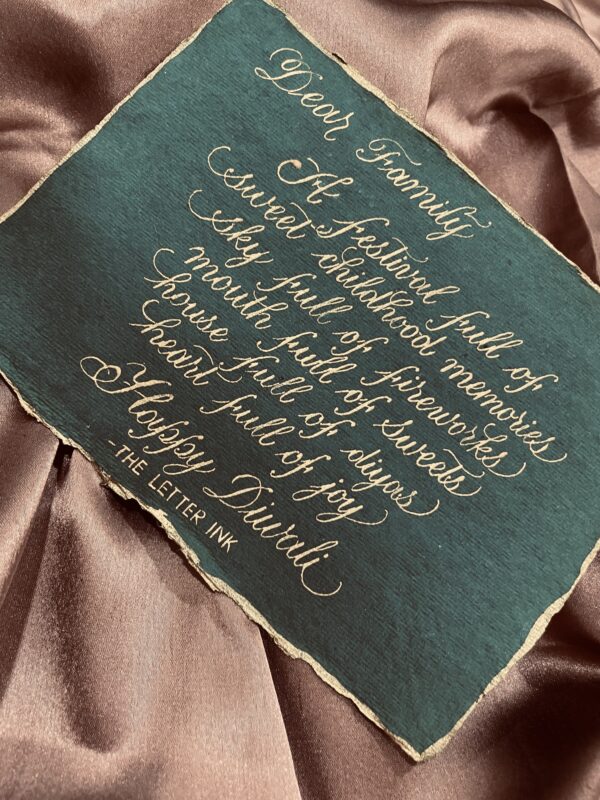 Dear Family
A Festival full of
sweet childhood memories
sky full of fireworks
mouth full of sweets
house full of diyas
heart full of joy
Happy Diwali
-THE LETTER INK